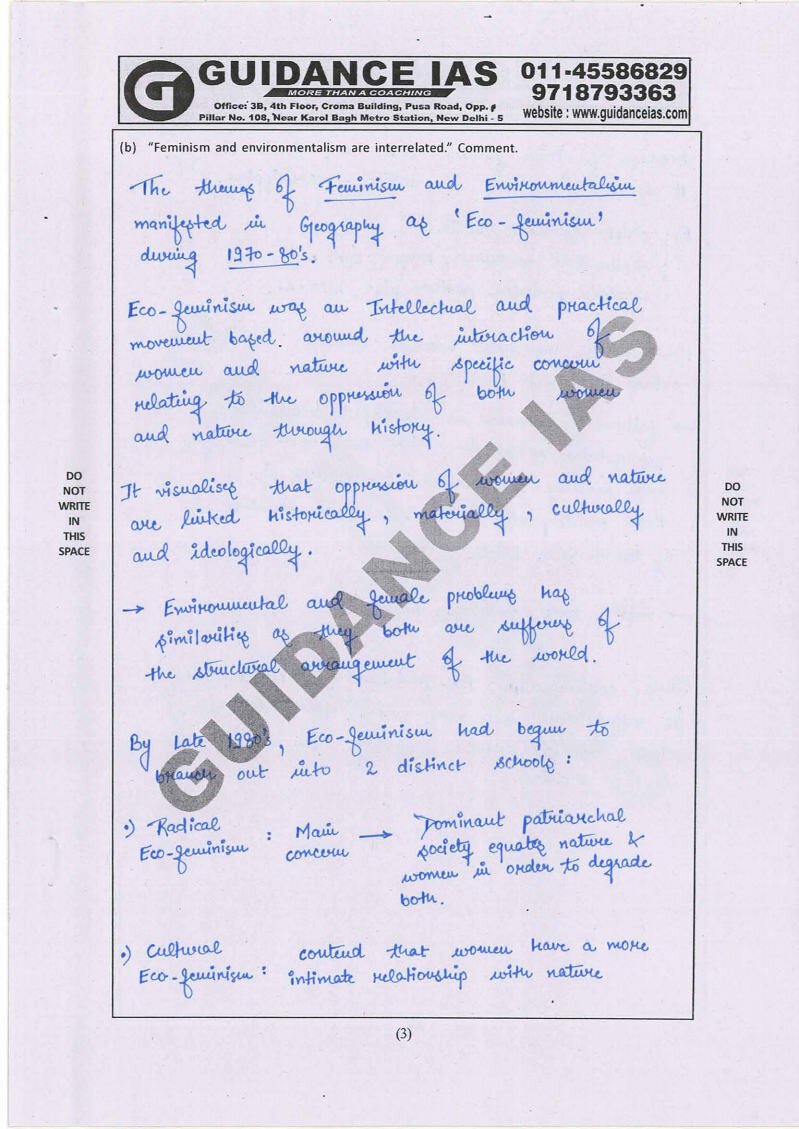 GUIDANCE IAS
MORE THAN A COACHING
Office: 3B, 4th Floor, Croma Building, Pusa Road, Opp.
Pillar No. 108, Near Karol Bagh Metro Station, New Delhi - 5
011-45586829
9718793363
website : www.guidanceias.com
(b) "Feminism and environmentalism are interrelated." Comment.
The themes of Feminism and Environmentalism
manifested in Geography as 'Eco-feminism'
during 1970-80's.
Eco-feminism was an Intellectual and practical
movement based. around the interaction of
women and nature with specific concern
relating to the oppression of both women
and nature through History.
It visualises that oppression of women and nature
are linked Historically, materially, culturally
and ideologically.
→ Environmental and female problems has
similarities as they both are sufferers of
the structural arrangement of the world.
By Late 1980's, Eco-feminism had begun to
branch out into 2 distinct schools :
•) Radical
Eco-feminism : Main
concern → Dominant patriarchal
society equates nature &
women in order to degrade
both.
•) Cultural
Eco-feminism : contend that women have a more
intimate relationship with nature
DO
NOT
WRITE
IN
THIS
SPACE
DO
NOT
WRITE
IN
THIS
SPACE
GUIDANCE IAS
(3)